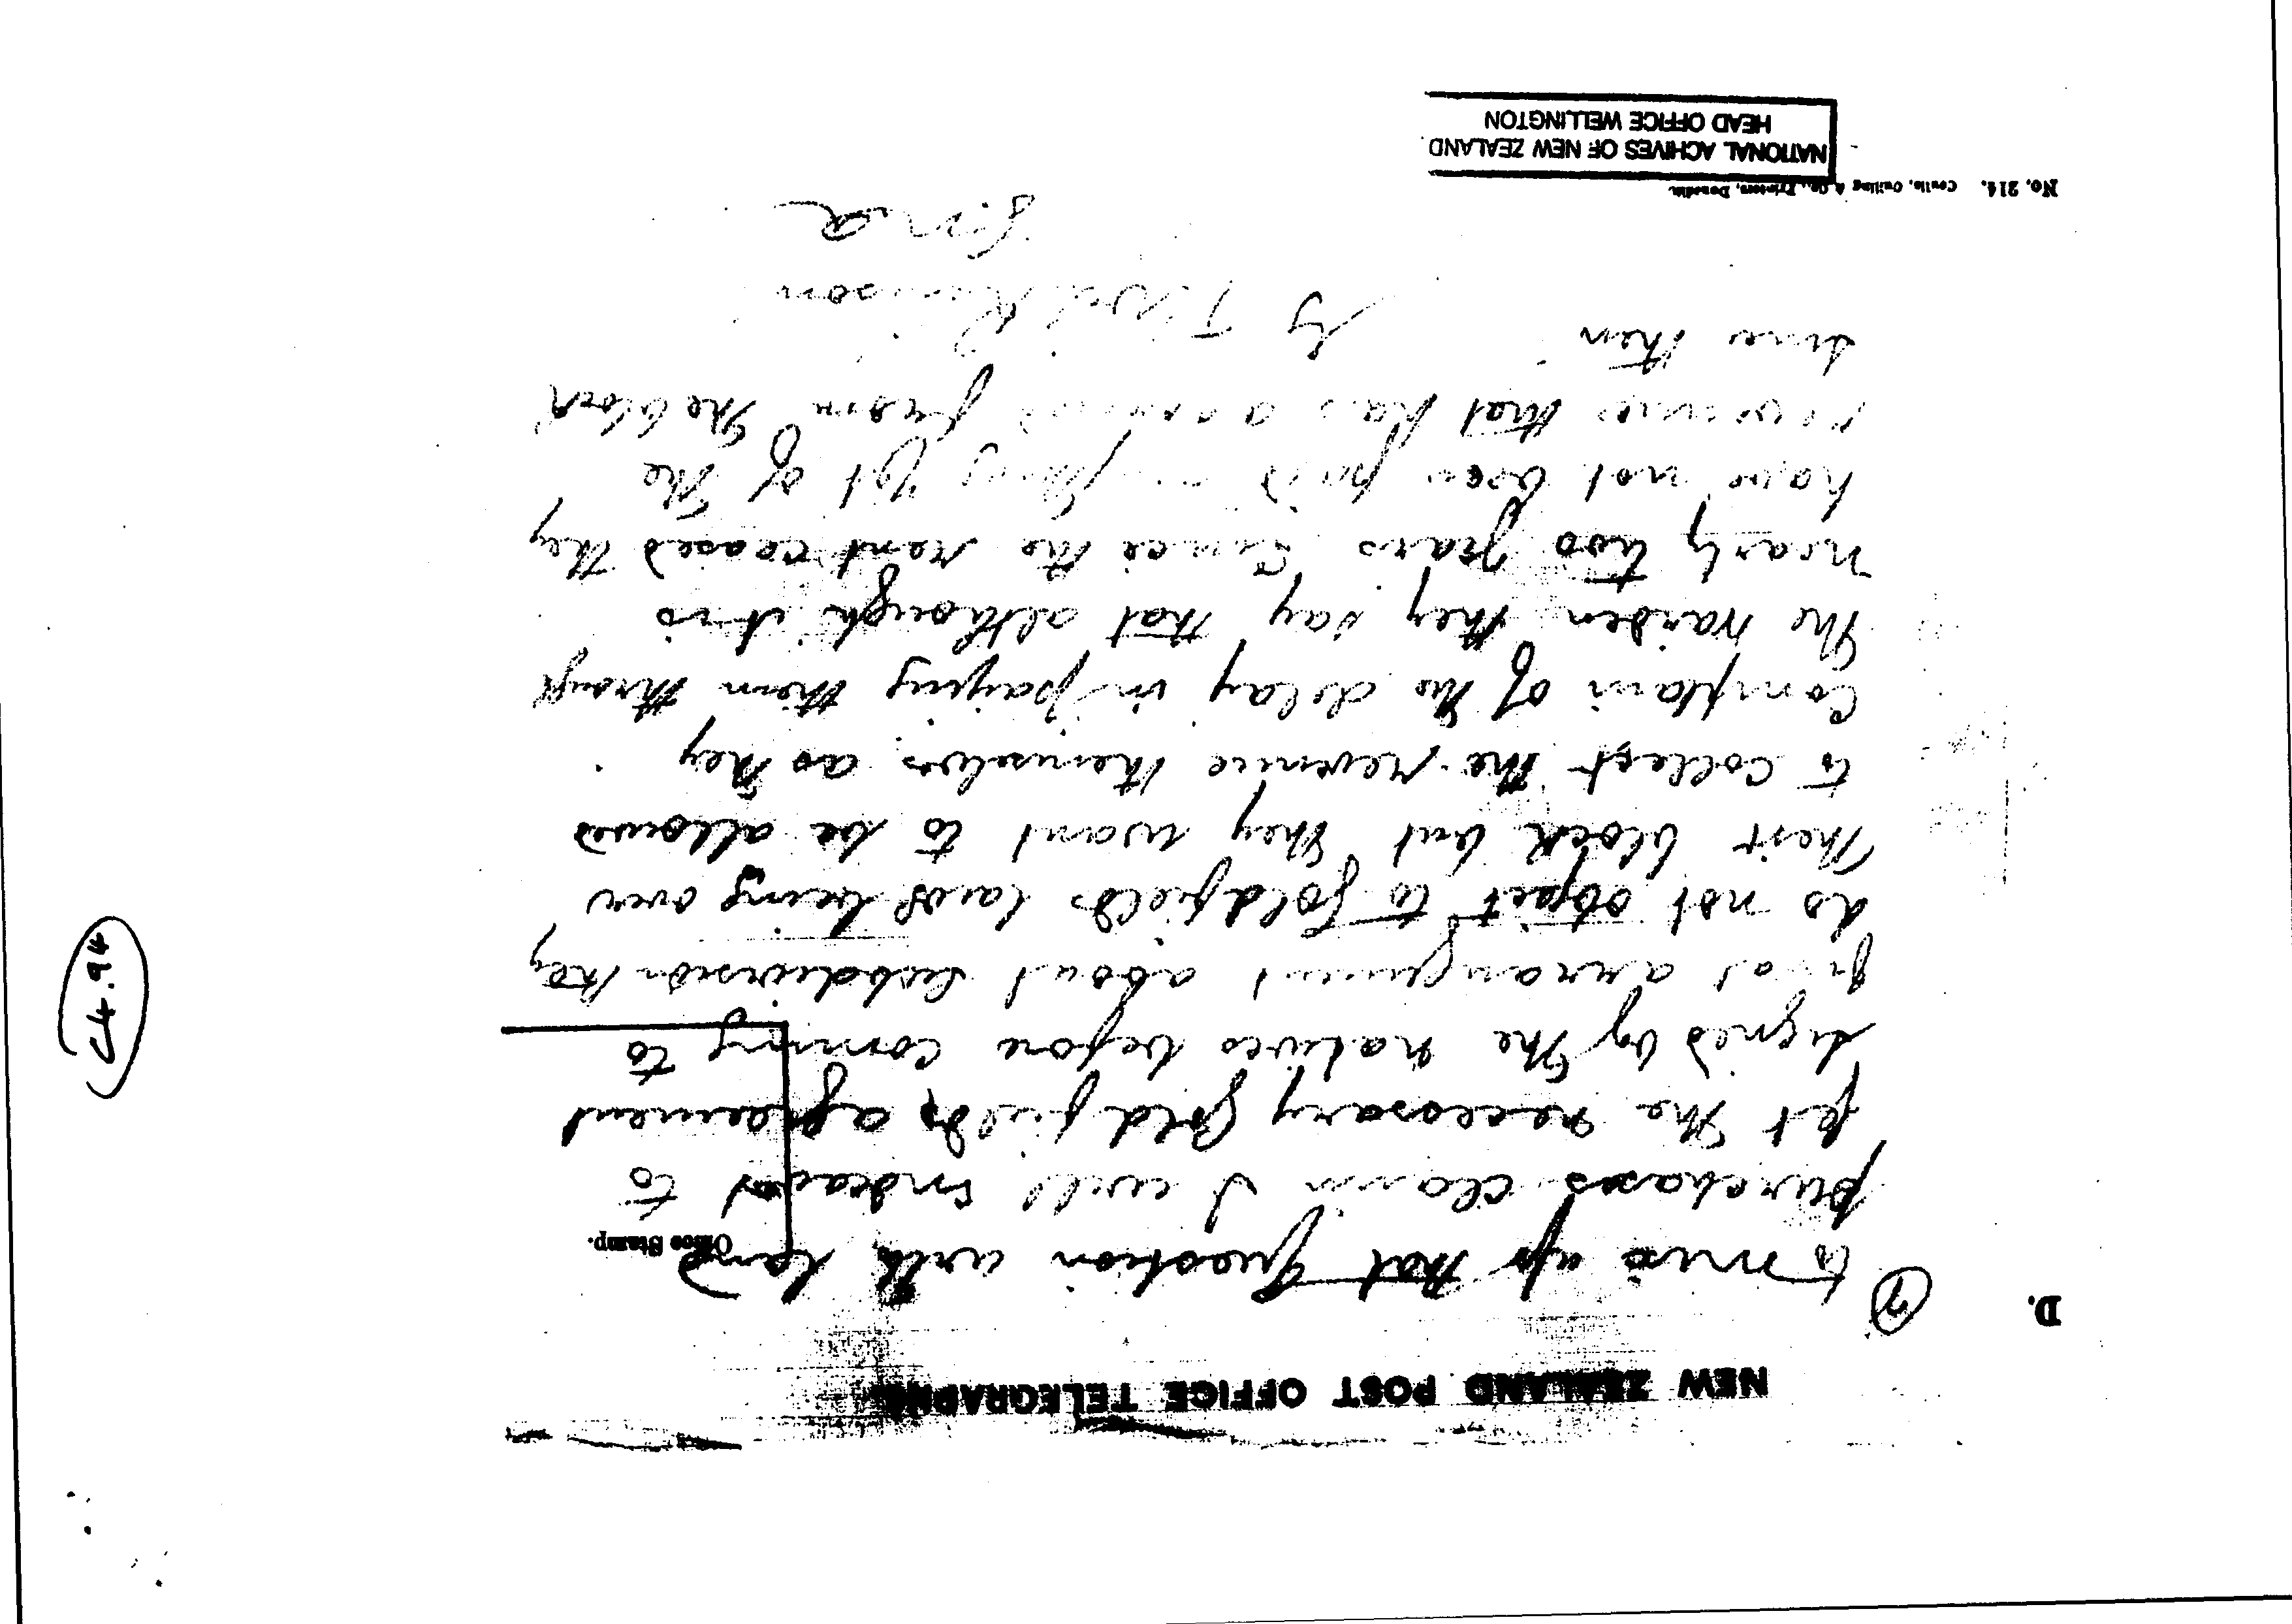 NEW ZEALAND POST OFFICE TELEGRAPHS
D.
Office Stamp.
to mix up that question with land
purchases claim I will endeavor to
get the necessary goldfields agreement
signed by the natives before coming to
final arrangement about subdivision they
do not object to goldfields laws being over
their block but they want to be allowed
to collect the revenue themselves as they
complain of the delay in paying them through
the Warden they say that although it is
nearly two years since the rent ceased they
have not been paid anything yet of the
revenue that has accrued from the block
since then
G Wilkinson
No. 214. Coulls, Culling & Co., Printers, Dunedin.
NATIONAL ACHIVES OF NEW ZEALAND
HEAD OFFICE WELLINGTON
C4.94